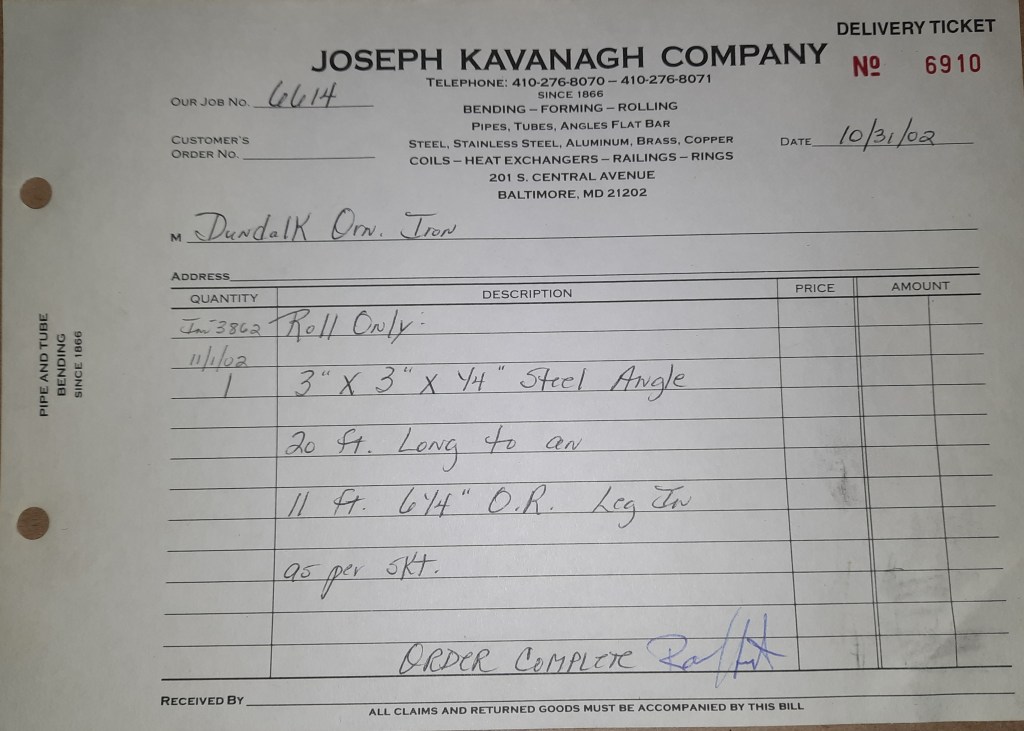 DELIVERY TICKET
JOSEPH KAVANAGH COMPANY
Nº 6910
TELEPHONE: 410-276-8070 – 410-276-8071
SINCE 1866
OUR JOB NO. 6614
BENDING – FORMING – ROLLING
PIPES, TUBES, ANGLES FLAT BAR
CUSTOMER'S
ORDER NO.
STEEL, STAINLESS STEEL, ALUMINUM, BRASS, COPPER
DATE 10/31/02
COILS – HEAT EXCHANGERS – RAILINGS – RINGS
201 S. CENTRAL AVENUE
BALTIMORE, MD 21202
M Dundalk Orn. Iron
ADDRESS
QUANTITY DESCRIPTION PRICE AMOUNT
Inv 3862 Roll Only:
11/1/02
1 3" X 3" X 1/4" Steel Angle
20 ft. Long to an
11 ft. 6 1/4" O.R. Leg In
as per skt.
ORDER COMPLETE
RECEIVED BY
ALL CLAIMS AND RETURNED GOODS MUST BE ACCOMPANIED BY THIS BILL
PIPE AND TUBE
BENDING
SINCE 1866